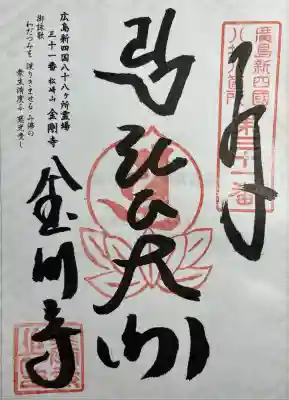 奉拝
廣島新四國
八十八ヶ所
第三十一番
弘法大師
金剛寺
広島新四国八十八ヶ所霊場
三十一番 松崎山 金剛寺
御詠歌
わだつみを 渡りきませる み佛の
衆生済度ぞ 慈光受し